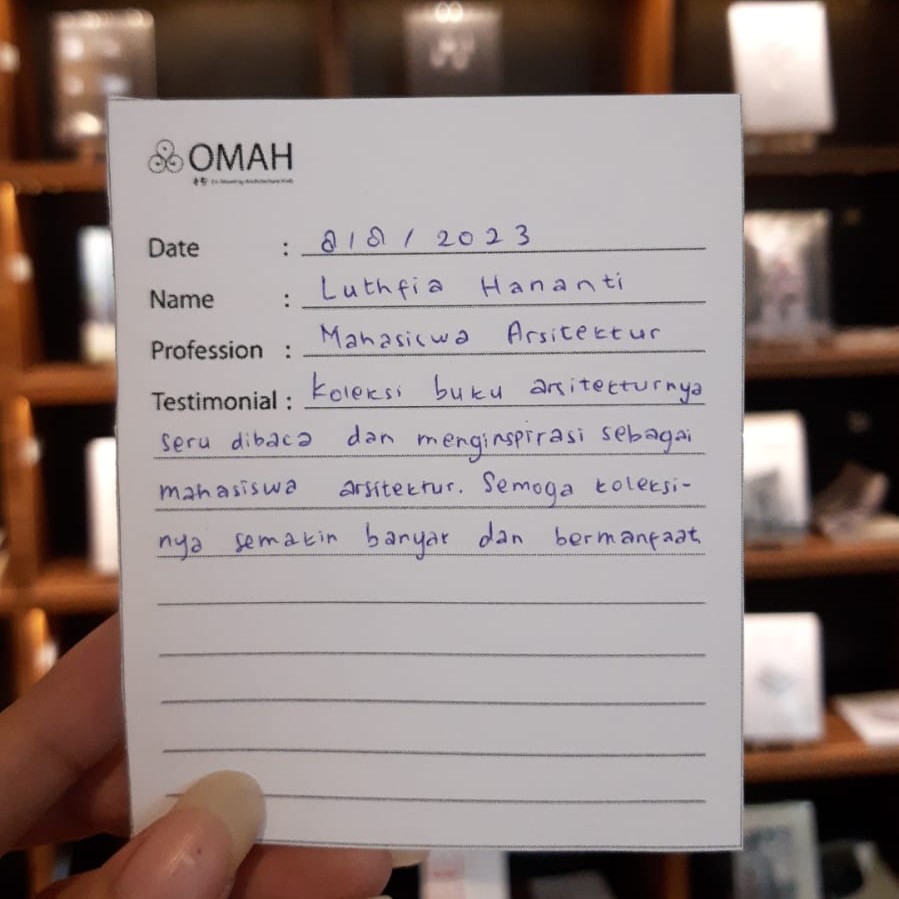 OMAH
Date : 8/8/2023
Name : Luthfia Hananti
Profession : Mahasiswa Arsitektur
Testimonial : koleksi buku arsitekturnya
seru dibaca dan menginspirasi sebagai
mahasiswa arsitektur. Semoga koleksi-
nya semakin banyak dan bermanfaat.